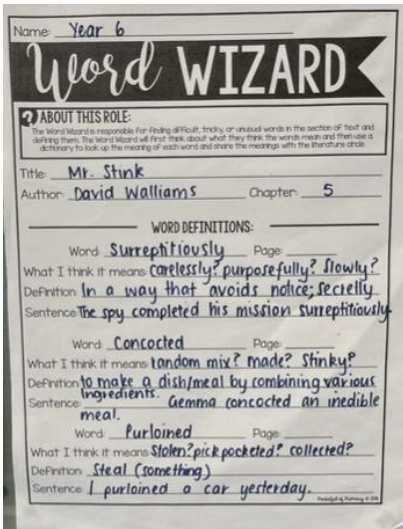 Name: Year 6
Word WIZARD
? ABOUT THIS ROLE:
The Word Wizard is responsible for finding difficult, tricky, or unusual words in the section of text and
defining them. The Word Wizard will first think about what they think the words mean and then use a
dictionary to look up the meaning of each word and share the meanings with the literature circle.
Title: Mr. Stink
Author: David Walliams Chapter: 5
WORD DEFINITIONS:
Word: Surreptitiously Page:
What I think it means: Carelessly? purposefully? Slowly?
Definition: In a way that avoids notice; secretly
Sentence: The spy completed his mission surreptitiously.
Word: Concocted Page:
What I think it means: random mix? made? Stinky?
Definition: to make a dish/meal by combining various
ingredients.
Sentence: Gemma concocted an inedible
meal.
Word: Purloined Page:
What I think it means: Stolen? pick pocketed? collected?
Definition: Steal (something)
Sentence: I purloined a car yesterday.